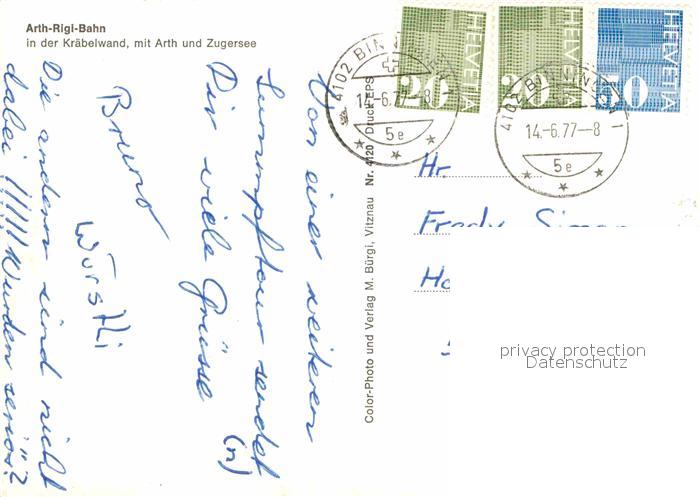 Arth-Rigi-Bahn
in der Kräbelwand, mit Arth und Zugersee
Von einer weiteren
Lumumpftour sendet
Dir viele Grüsse
(n)
Bruno
Würstli
Die anderen sind nicht
dabei !!!!! Wurden seriös?
Color-Photo und Verlag M. Bürgi, Vitznau Nr. 4120 Druck EPS
HELVETIA
20
HELVETIA
20
HELVETIA
50
4102 BINNINGEN 1
14.-6.77-8
5e
4102 BINNINGEN 1
14.-6.77-8
5e
Hr.
Fredy
privacy protection
Datenschutz